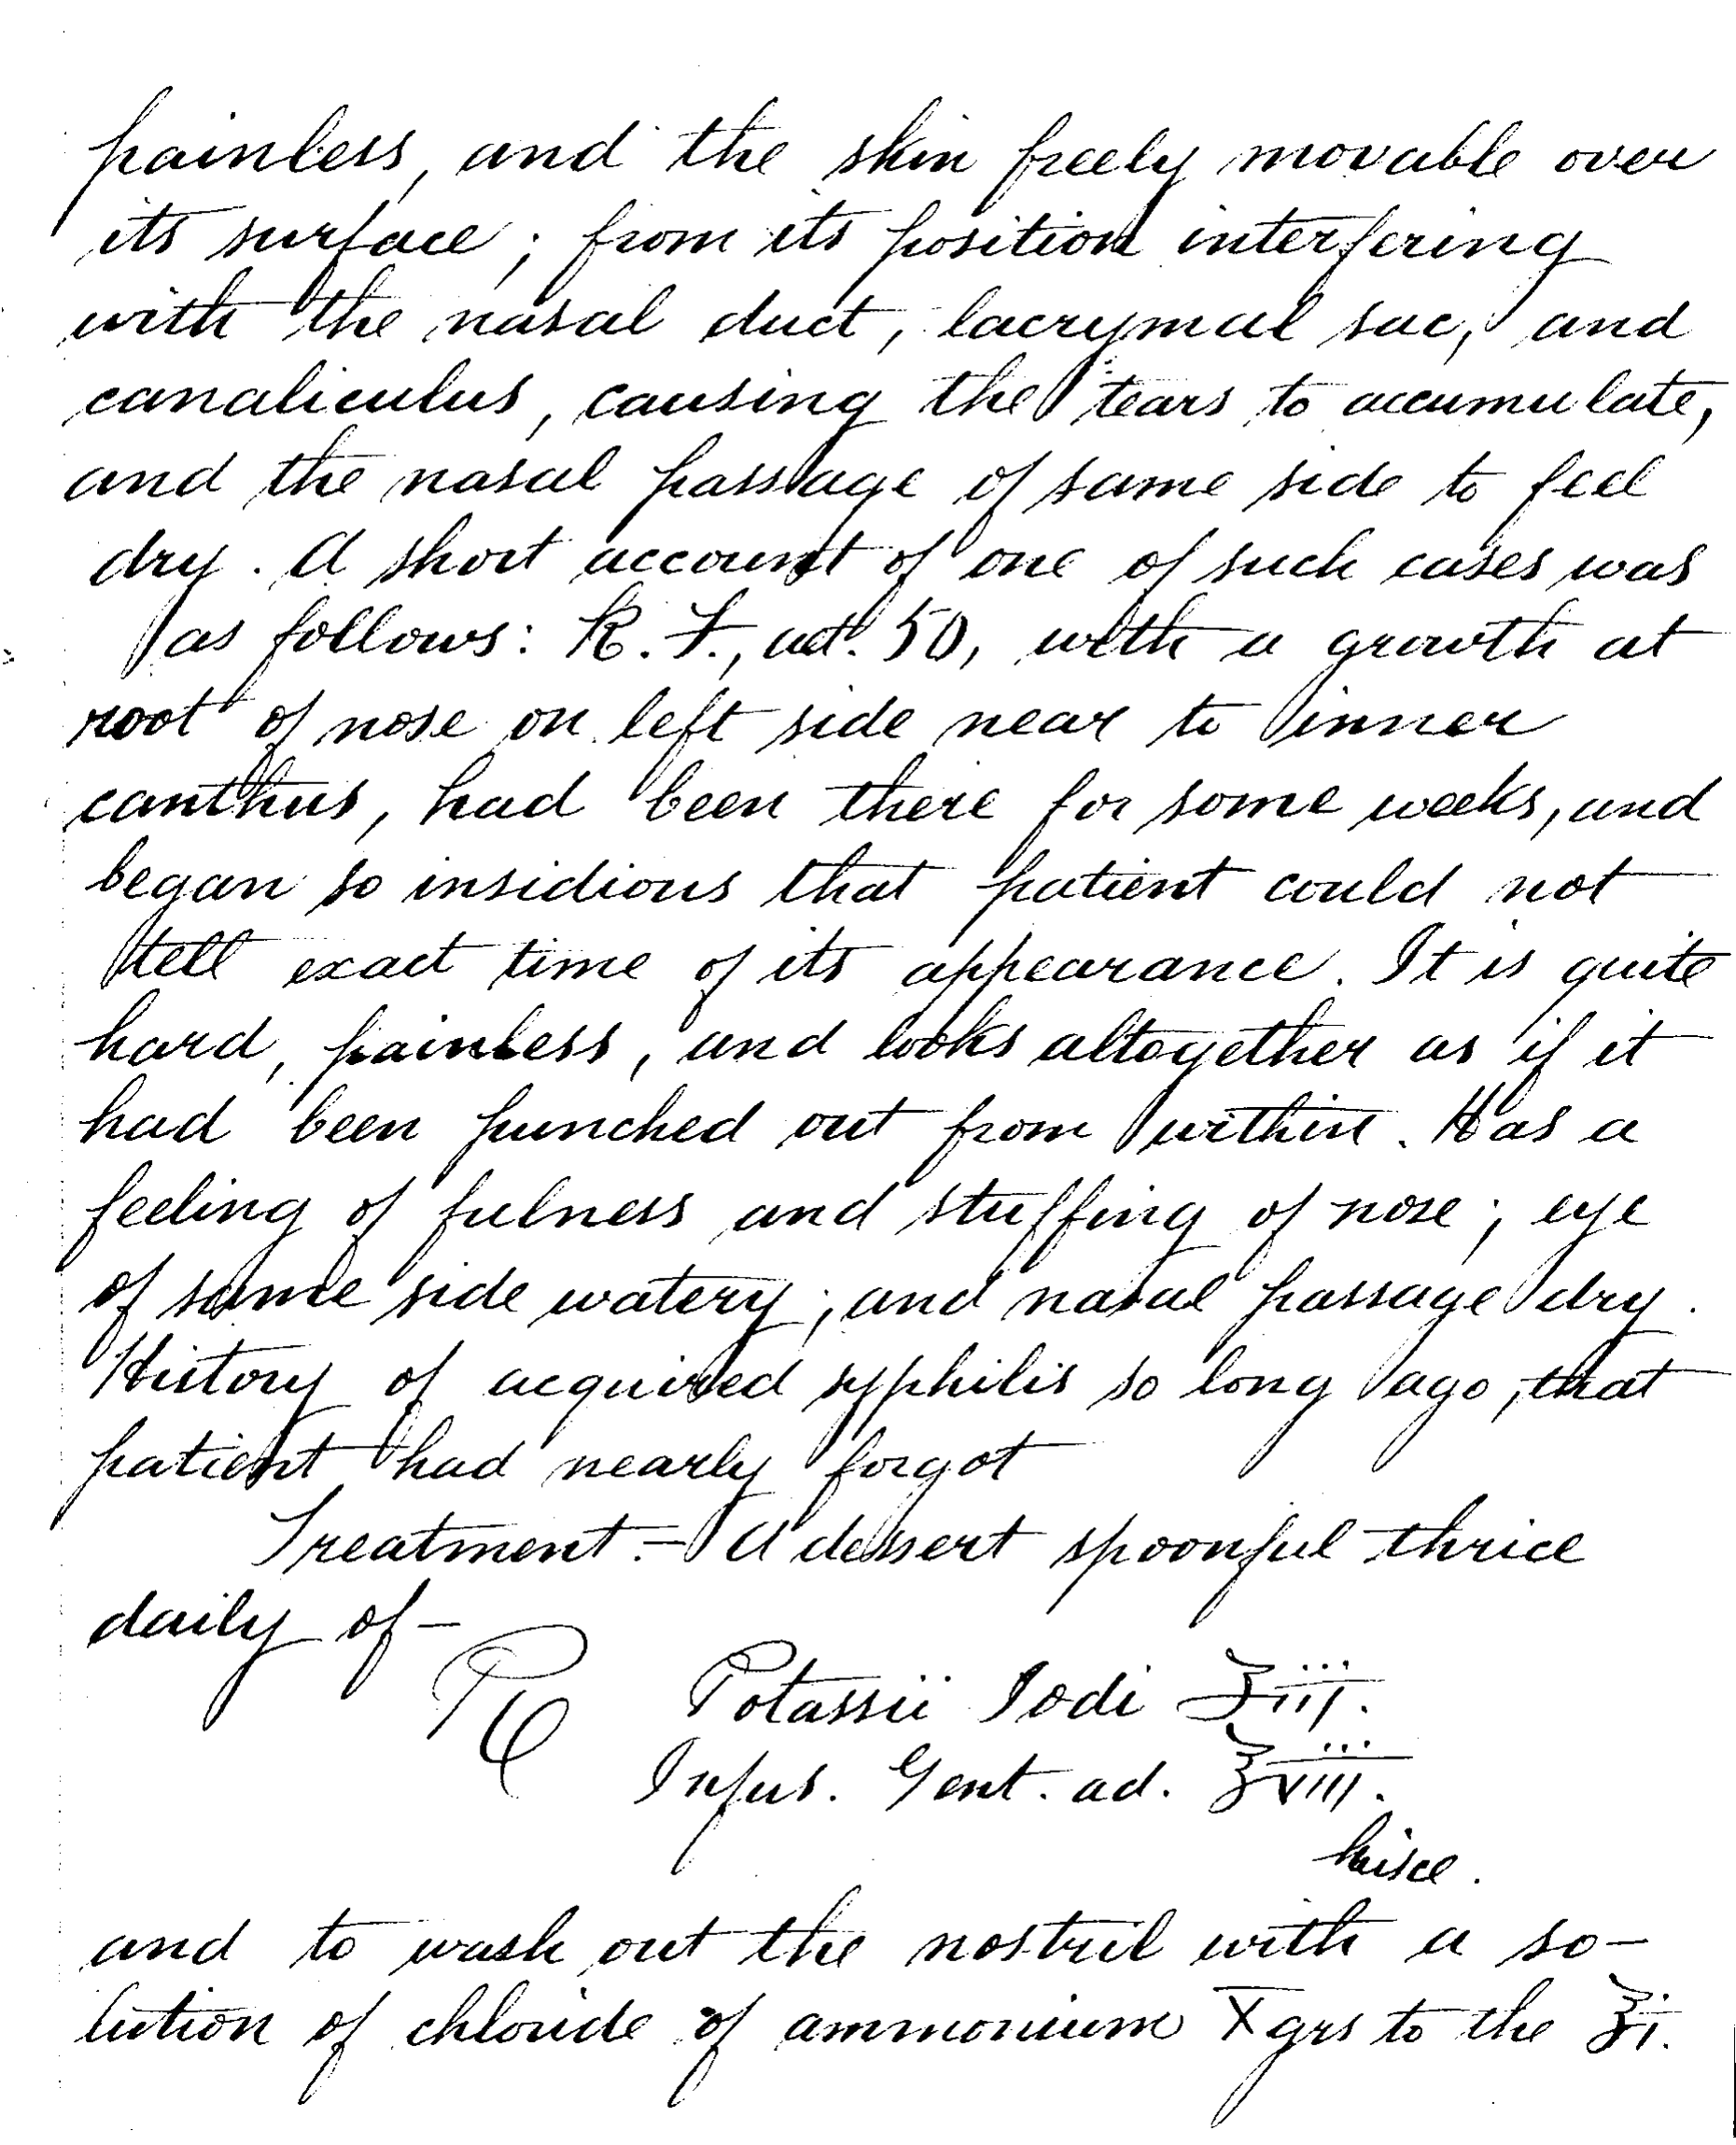 painless, and the skin freely movable over
its surface; from its position interfering
with the nasal duct, lacrymal sac, and
canaliculus, causing the tears to accumulate,
and the nasal passage of same side to feel
dry. A short account of one of such cases was
as follows: R. F., aet. 50, with a growth at
root of nose on left side near to inner
canthus, had been there for some weeks, and
began so insidious that patient could not
tell exact time of its appearance. It is quite
hard, painless, and looks altogether as if it
had been punched out from within. Has a
feeling of fulness and stuffing of nose; eye
of same side watery; and nasal passage dry.
History of acquired syphilis so long ago, that
patient had nearly forgot
Treatment.— A dessert spoonful thrice
daily of—
℞ Potassii Iodi ʒiii.
Infus. Gent. ad. ℥viii.
misce.
and to wash out the nostril with a so-
lution of chloride of ammonium X grs to the ℥i.